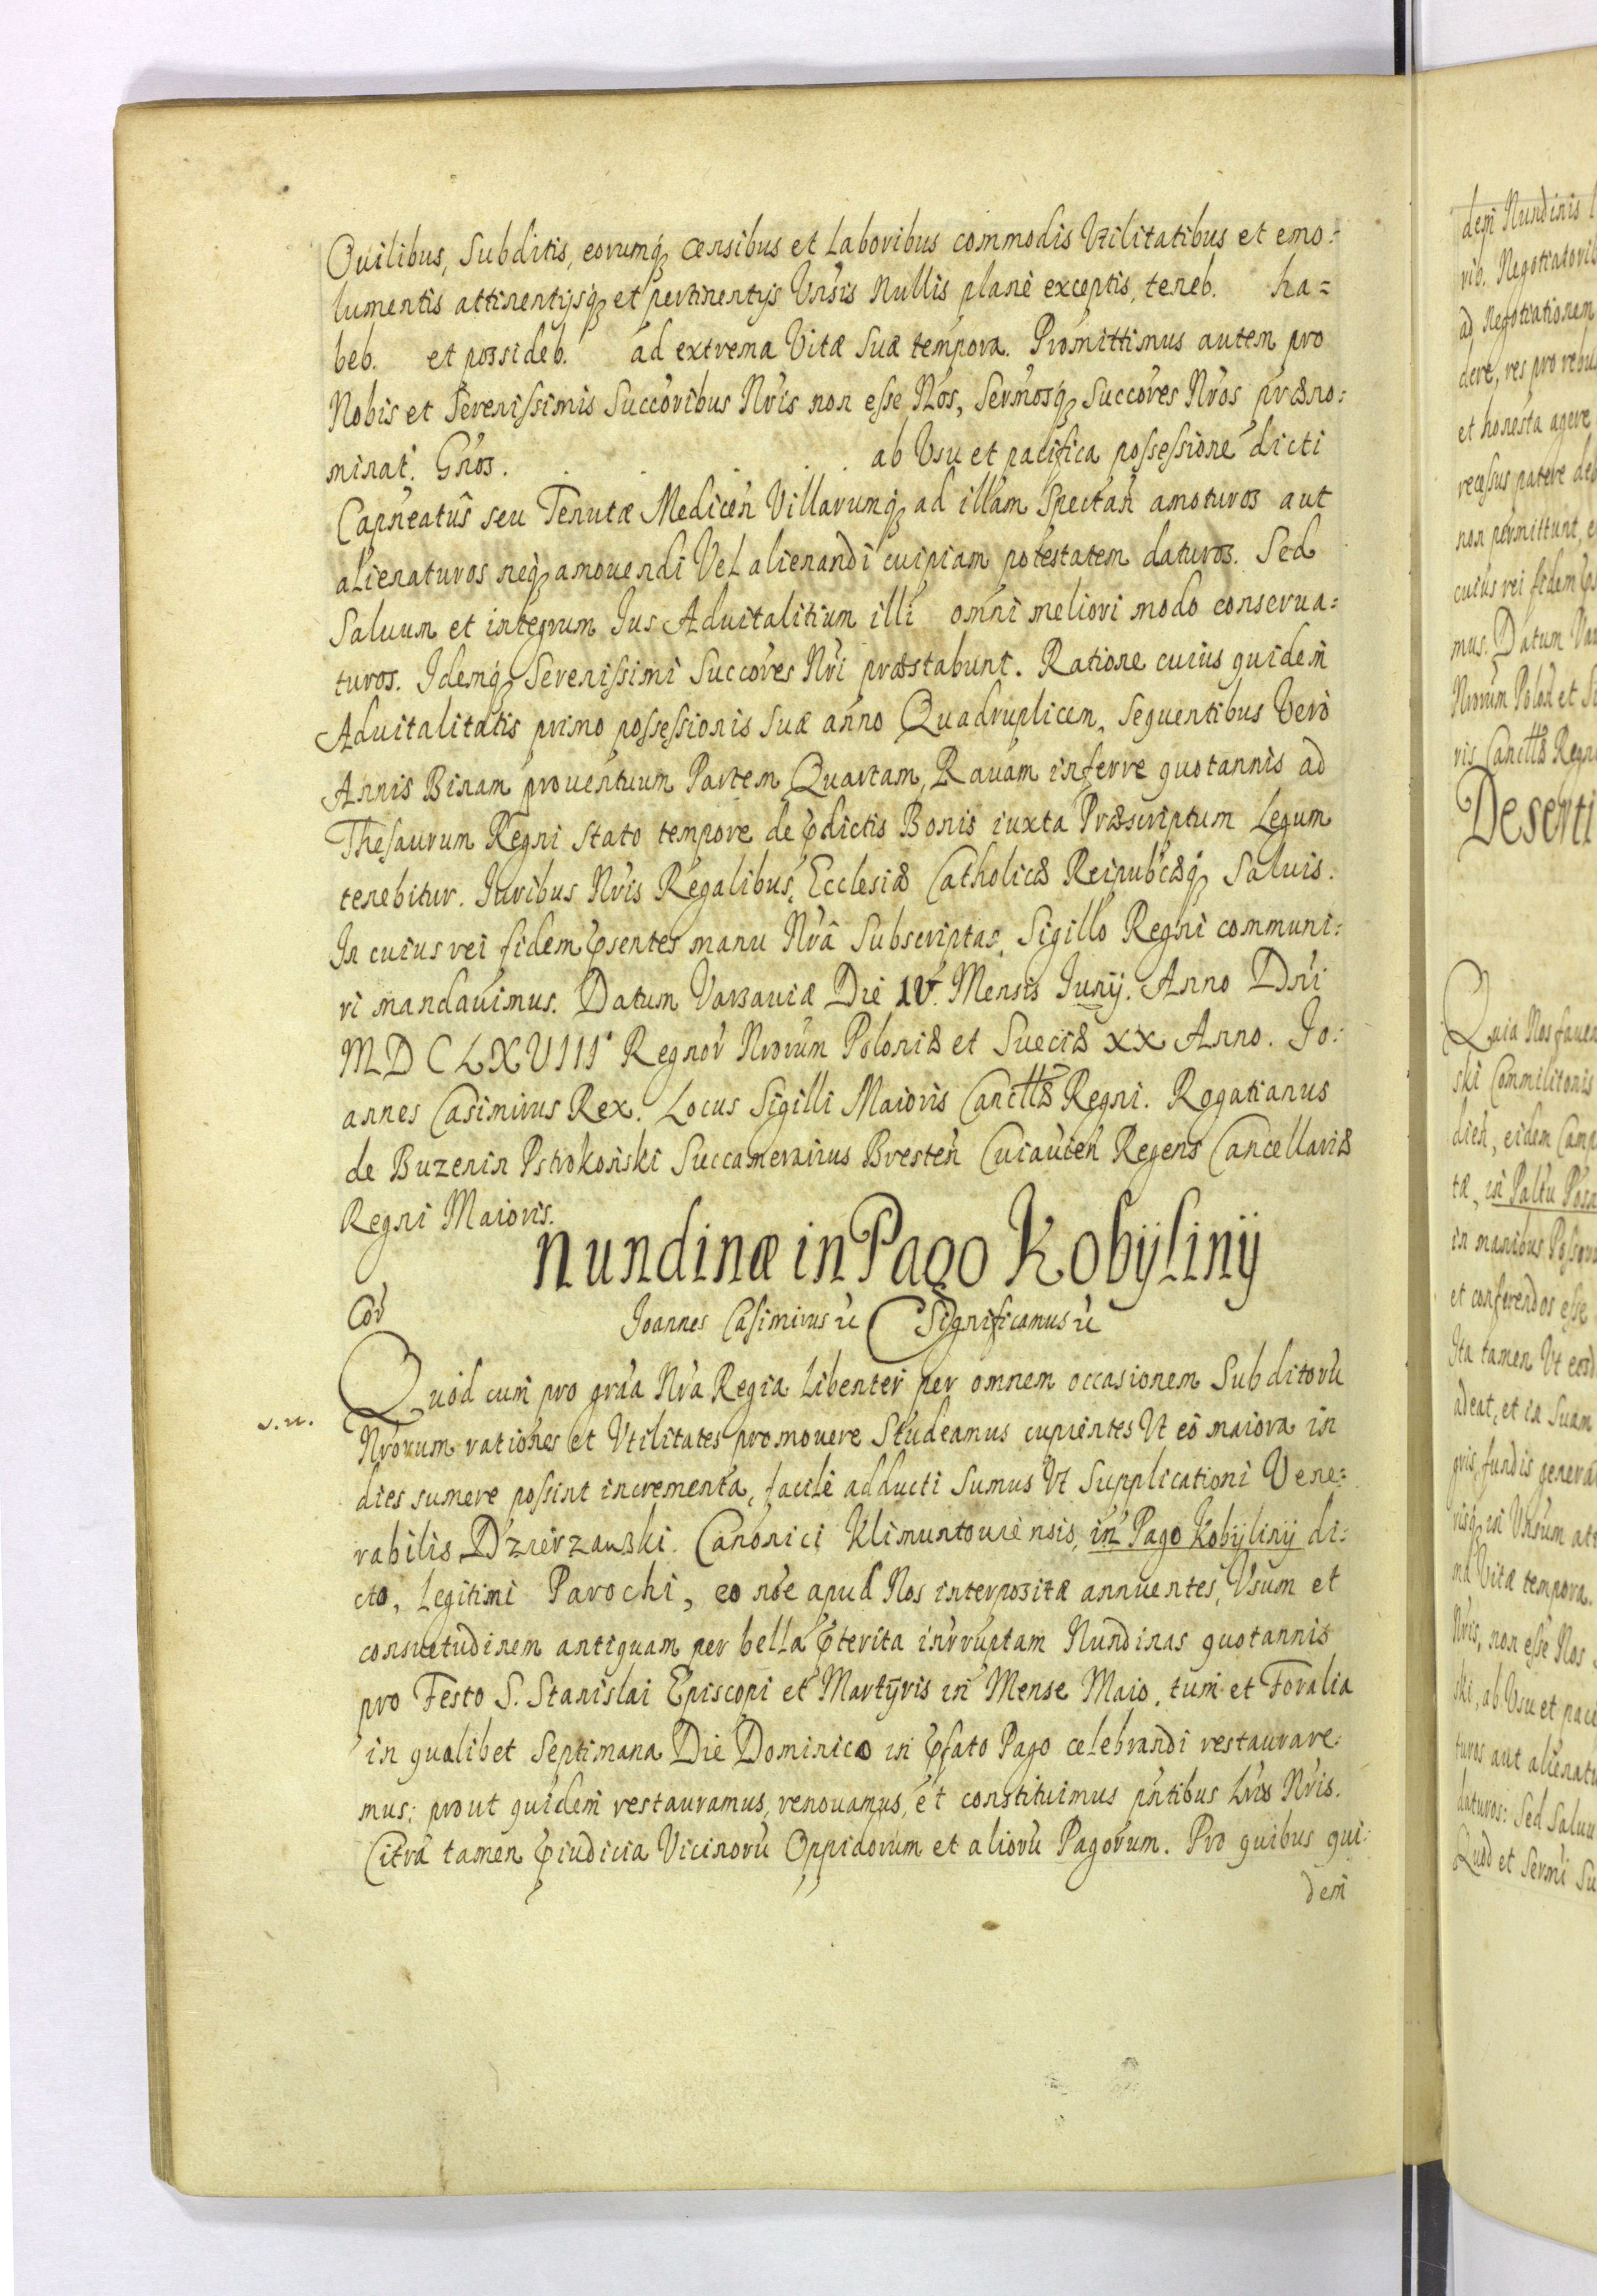 Ouilibus, Subditis, eorumq censibus et Laboribus commodis Vtilitatibus et emo:
lumentis attinentijsq et pertinentijs Vnsis Nullis planè exceptis, teneb. ha=
beb. et possideb. ad extrema Vitæ Suæ tempora. Promittimus autem pro
Nobis et Serenissimis Succoribus Nris non esse Nos, Sermosq Succores Nros præno:
minat. Gnos. . . . . ab Vsu et pacifica possessione dicti
Capneatûs seu Tenutæ Medicen Villarumq ad illam Spectan amoturos aut
alienaturos neq amouendi Vel alienandi cuipiam potestatem daturos. Sed
Saluum et integrum Jus Aduitalitium illi omni meliori modo conserua:
turos. Idemq Serenissimi Succores Nri præstabunt. Ratione cuius quidem
Aduitalitatis primo possessionis Suæ anno Quadruplicem, Sequentibus Verò
Annis Binam prouentuum Partem Quartam, Rauam inferre quotannis ad
Thesaurum Regni Stato tempore de pdictis Bonis iuxta Præscriptum Legum
tenebitur. Juribus Nris Regalibus, Ecclesiæ Catholicæ Reipubcæq Saluis.
In cuius rei fidem psentes manu Nrâ Subscriptas, Sigillo Regni communi:
ri mandauimus. Datum Varsauiæ Die IV. Mensis Junij. Anno Dni
MDCLXVIII Regnor Nrorum Poloniæ et Sueciæ XX Anno. Jo:
annes Casimirus Rex. Locus Sigilli Maioris Cancttæ Regni. Rogatianus
de Buzenin Pstrokoński Succamerarius Bresten Cuiauien Regens Cancellariæ
Regni Maioris.
Nundinæ in Pago Kobijlinij
Cor
Joannes Casimirus &c Significamus &c
Quod cum pro grâa Nra Regia Libenter per omnem occasionem Subditorû
Nrorum rationes et Vtilitates promouere Studeamus cupientes Vt eò maiora in
dies sumere possint incrementa, facilè adducti Sumus Vt Supplicationi Vene:
rabilis Dzierzanski Canonici Klimuntouiensis, in Pago Kobijlinij di:
cto, Legitimi Parochi, eo noe apud Nos interpositæ annuentes, Vsum et
consuetudinem antiquam per bella pterita inrruptam Nundinas quotannis
pro Festo S. Stanislai Episcopi et Martyris in Mense Maio, tum et Foralia
in qualibet Septimana Die Dominico in pfato Pago celebrandi restaurare:
mus: prout quidem restauramus, renouamus, et constituimus pntibus Lris Nris.
Citrà tamen piudicia Vicinorû Oppidorum et aliorû Pagorum. Pro quibus qui:
dem
dem Nundinis
rib. Negotiatorib
ad Negotiationem
dere, res pro rebus
et honesta agere
recessus patere deb
non permittunt, e
cuius rei fidem ps
mus. Datum Var
Nrorum Polon et S
ris Cancttæ Regni
Deserti
Quia Nos fauen
ski Commilitonis
dien, eidem Camp
tæ, in Paltu Posn
in manibus Possess
et conferendos esse
Ita tamen Vt eosd
adeat, et ia Suam
gris, fundis genera
risq in Vnsum att
ma Vitæ tempora.
Nris, non esse Nos
ski, ab Vsu et paci
turos aut alienatu
daturos: Sed Saluu
Quod et Sermi Su